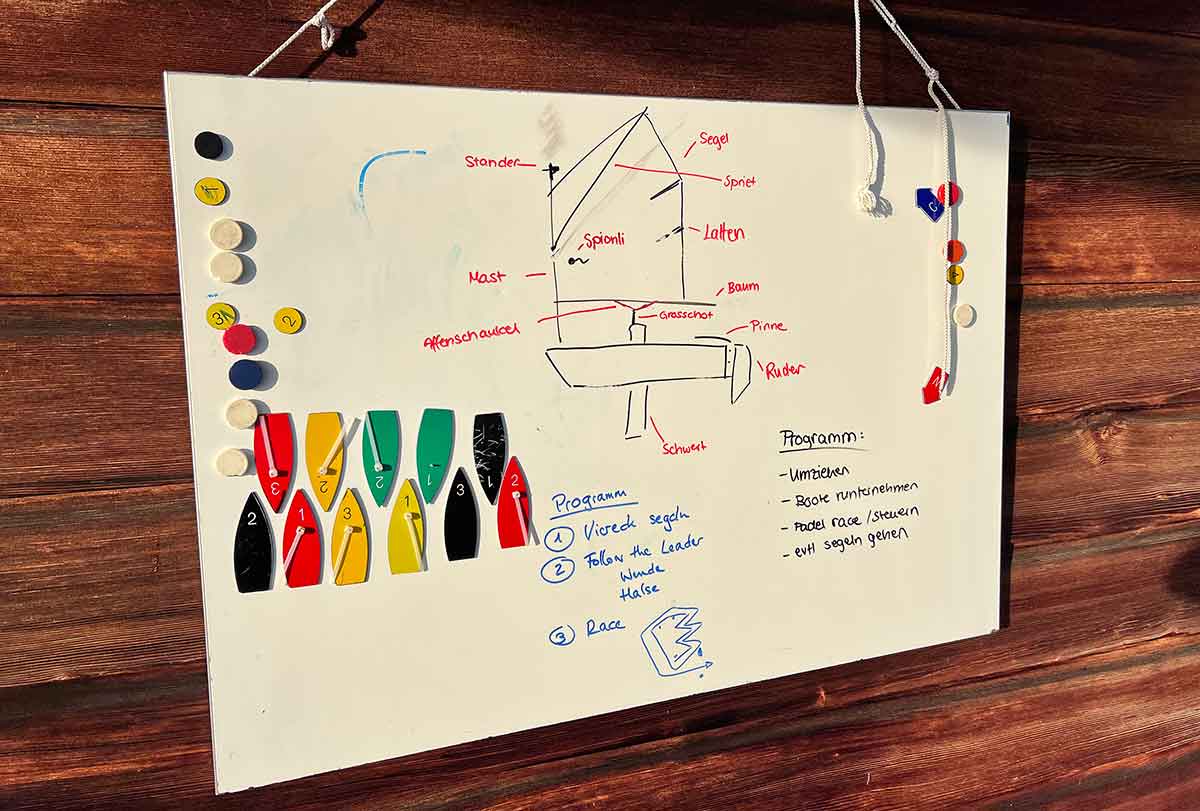 Stander
Segel
Spriet
Spionli
Latten
Mast
Baum
Affenschaukel
Grosschot
Pinne
Ruder
Schwert
3
2
3
2
2
1
1
2
1
3
1
3
2
Programm
1 Viereck segeln
2 Follow the Leader
Wende
Halse
3 Race
Programm:
- Umziehen
- Boote runternehmen
- Padel race / steuern
- evtl segeln gehen